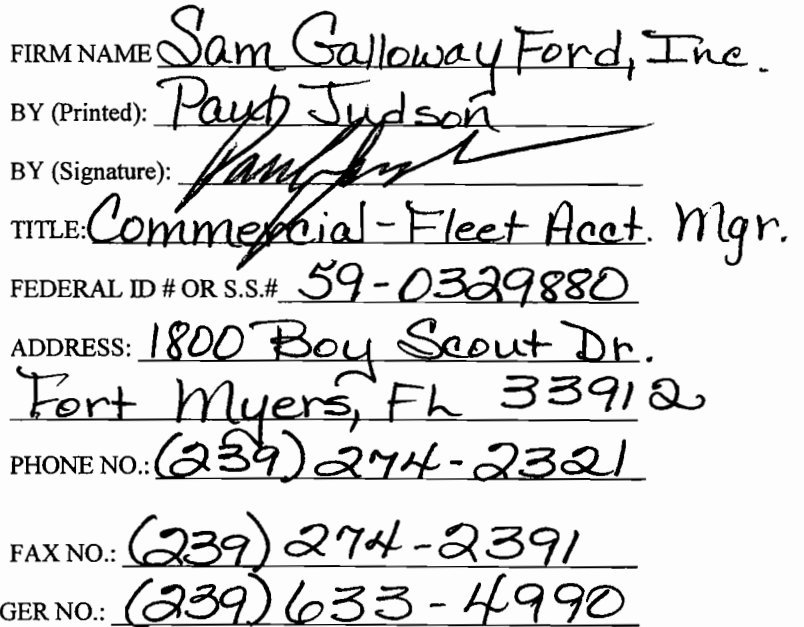 FIRM NAME Sam Galloway Ford, Inc.
BY (Printed): Paul Judson
BY (Signature):
TITLE: Commercial-Fleet Acct. Mgr.
FEDERAL ID # OR S.S.# 59-0329880
ADDRESS: 1800 Boy Scout Dr.
Fort Myers, FL 33912
PHONE NO.: (239) 274-2321
FAX NO.: (239) 274-2391
GER NO.: (239) 633-4990